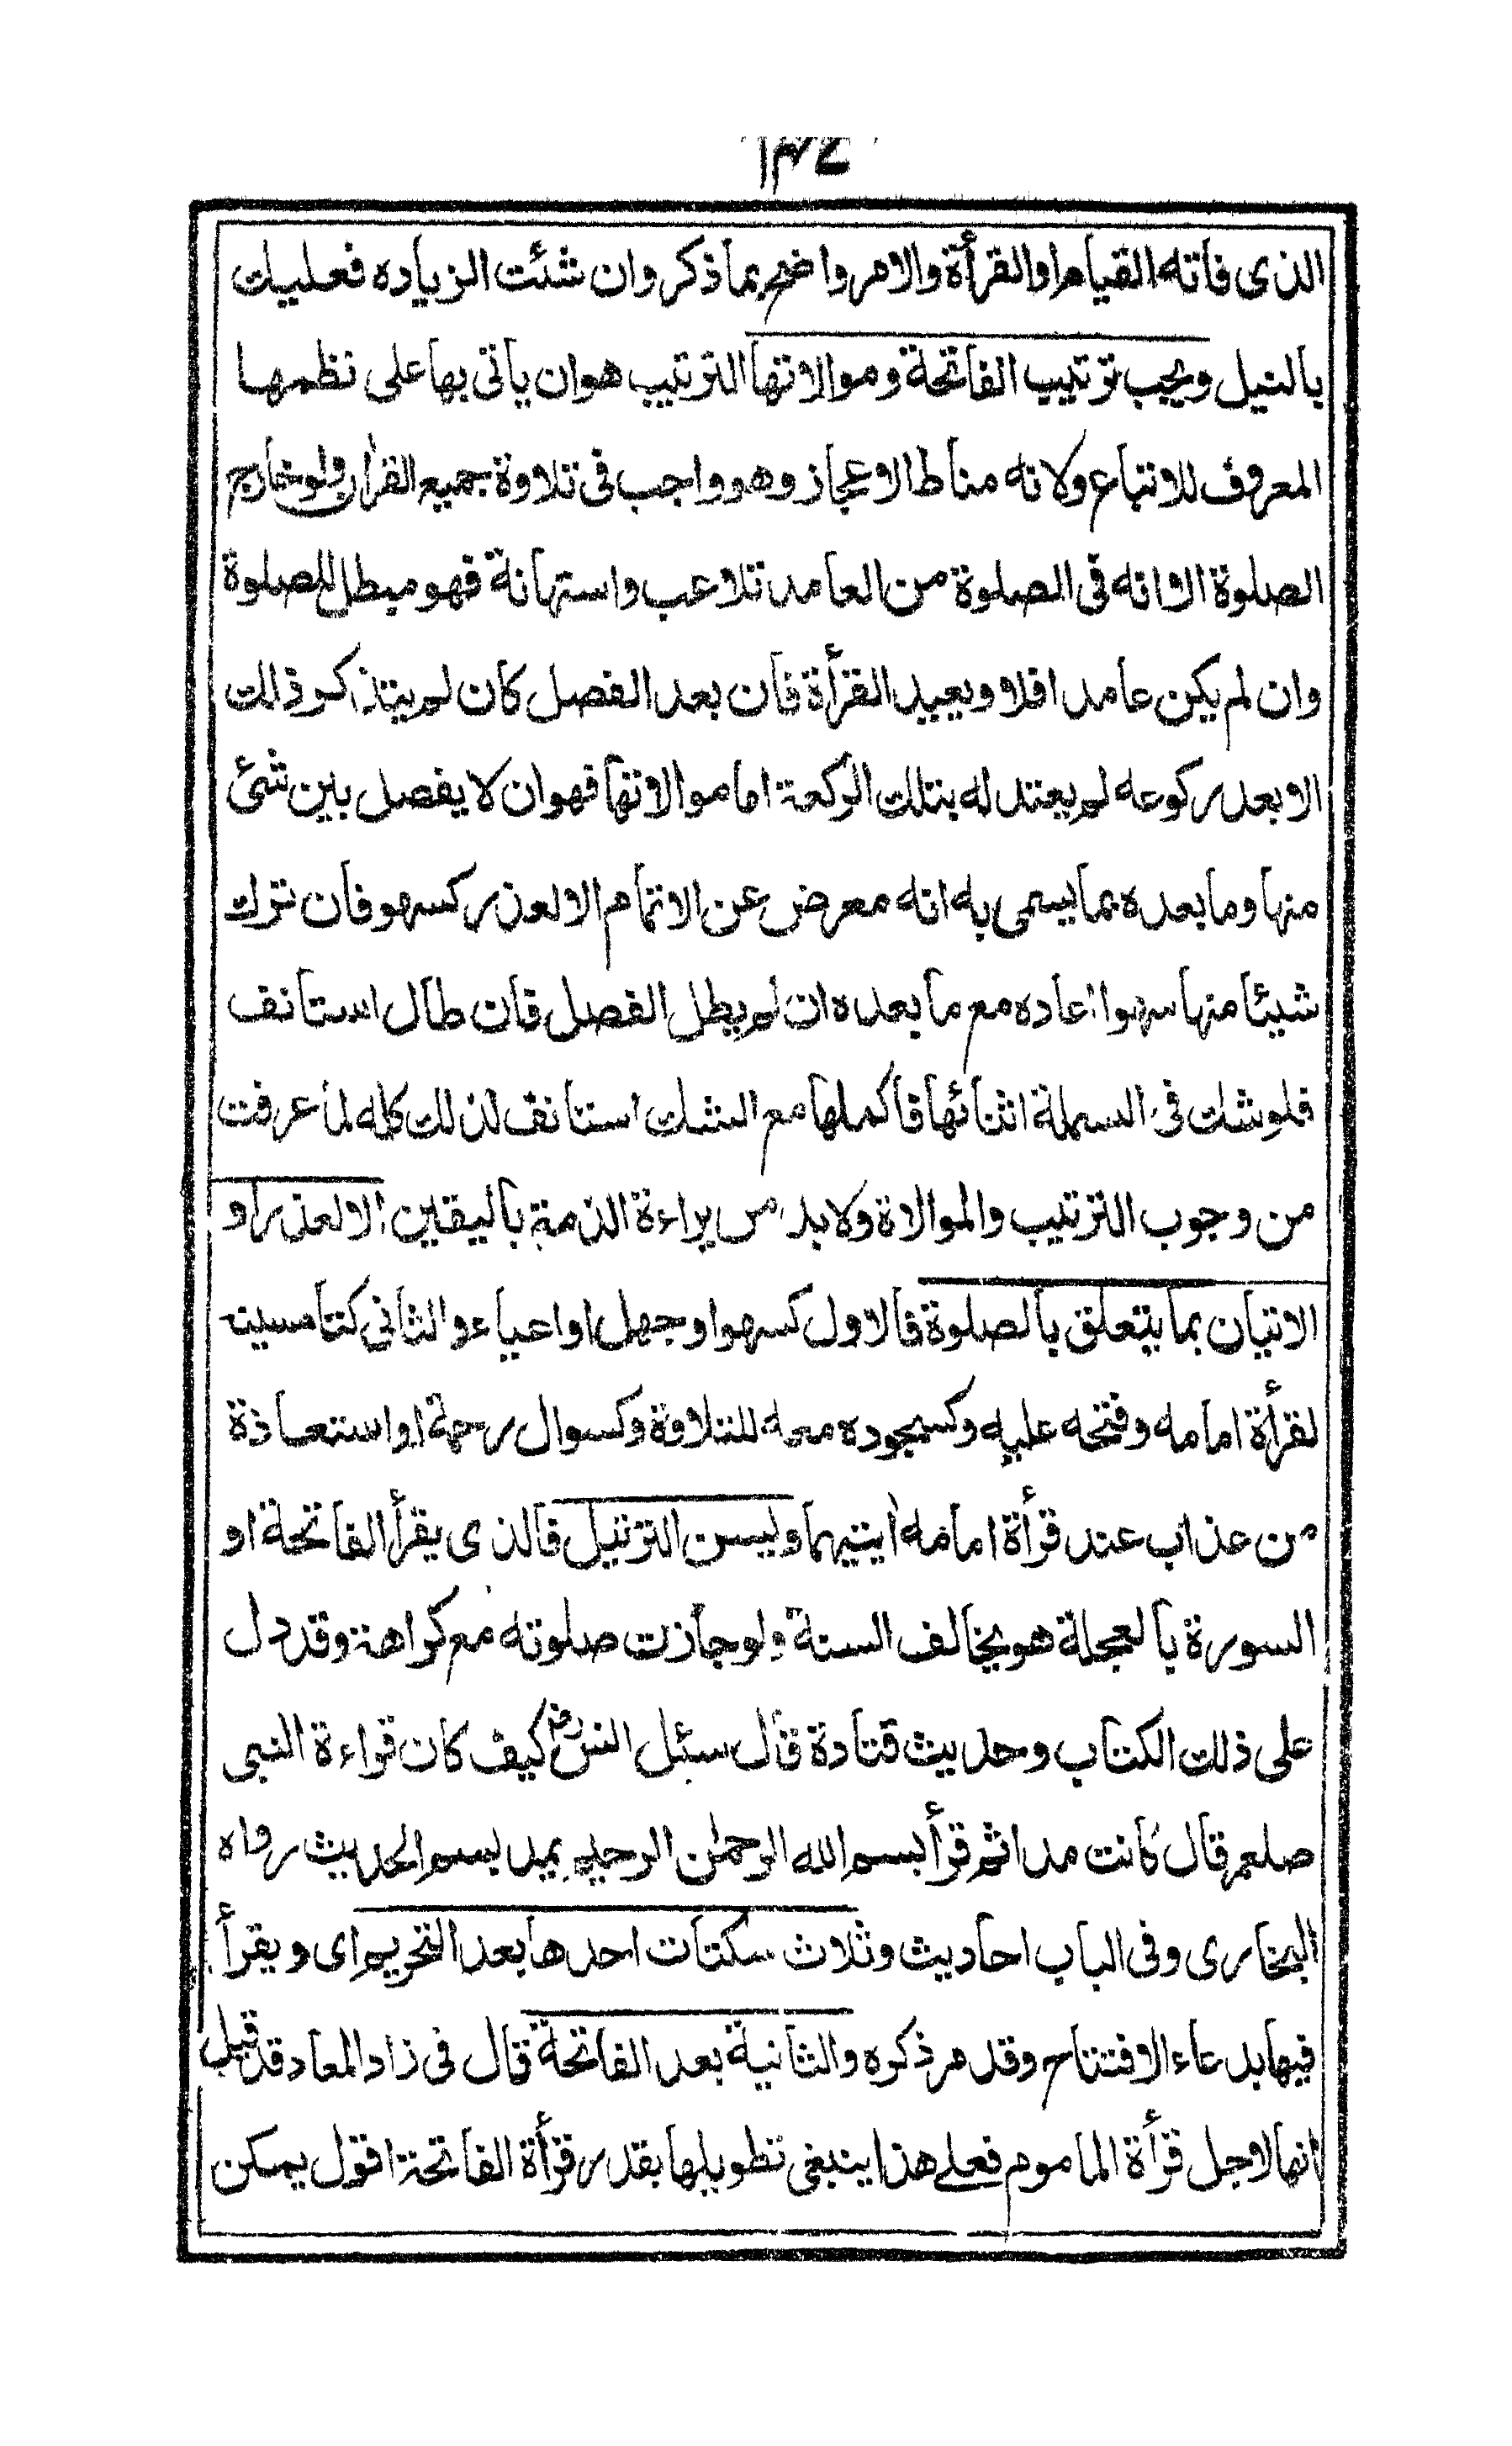 ١٣٤
الذى فاته القيام او القرأة والامر واضح بما ذكر وان شئت الزياده فعليك
بالنيل ويجب ترتيب الفاتحة وموالاتها الترتيب هو ان ياتى بها على نظمها
المعروف للاتباع ولانه مناط الاعجاز وهو واجب فى تلاوة جميع القرأن ولو خارج
الصلوة الا انه فى الصلوة من العامد تلاعب واستهانة فهو مبطل للصلوة
وان لم يكن عامدا فلا ويعيد القرأة فان بعد الفصل كان لم يتذاكر ذلك
الا بعد ركوعه لم يعتد له بتلك الركعة اما موالاتها فهو ان لا يفصل بين شئ
منها وما بعده بما يسمى به انه معرض عن الاتمام الا لعذر كسهو فان ترك
شيئا منها سهوا اعاده مع ما بعده ان لم يطل الفصل فان طال استانف
فلو شك فى البسملة اثنائها فاكملها مع الشك استانف لذلك كله لما عرفت
من وجوب الترتيب والموالاة ولا بد من براءة الذمة باليقين الا لعذر او
الاتيان بما يتعلق بالصلوة فالاول كسهو او جهل او اعياء والثانى كتاسينه
لقرأة امامه وفتحه عليه وكسجوده معه للتلاوة وكسوال رحمة او استعاذة
من عذاب عند قرأة امامه أيتيهما ويسن الترتيل فالذى يقرأ الفاتحة او
السورة بالعجلة هو يخالف السنة ولو جازت صلوته مع كراهة وقد دل
على ذلك الكتاب وحديث قتادة قال سئل انس رض كيف كان قراءة النبى
صلعم قال كانت مدا ثم قرأ بسم الله الرحمٰن الرحيم يمد بسم الحديث رواه
البخارى وفى الباب احاديث وثلاث سكتات احدها بعد التحريم اى ويقرأ
فيها بدعاء الافتتاح وقد مر ذكره والثانية بعد الفاتحة قال فى زاد المعاد قد قيل
انها لاجل قرأة الماموم فعلى هذا ينبغى تطويلها بقدر قرأة الفاتحة اقول يمكن